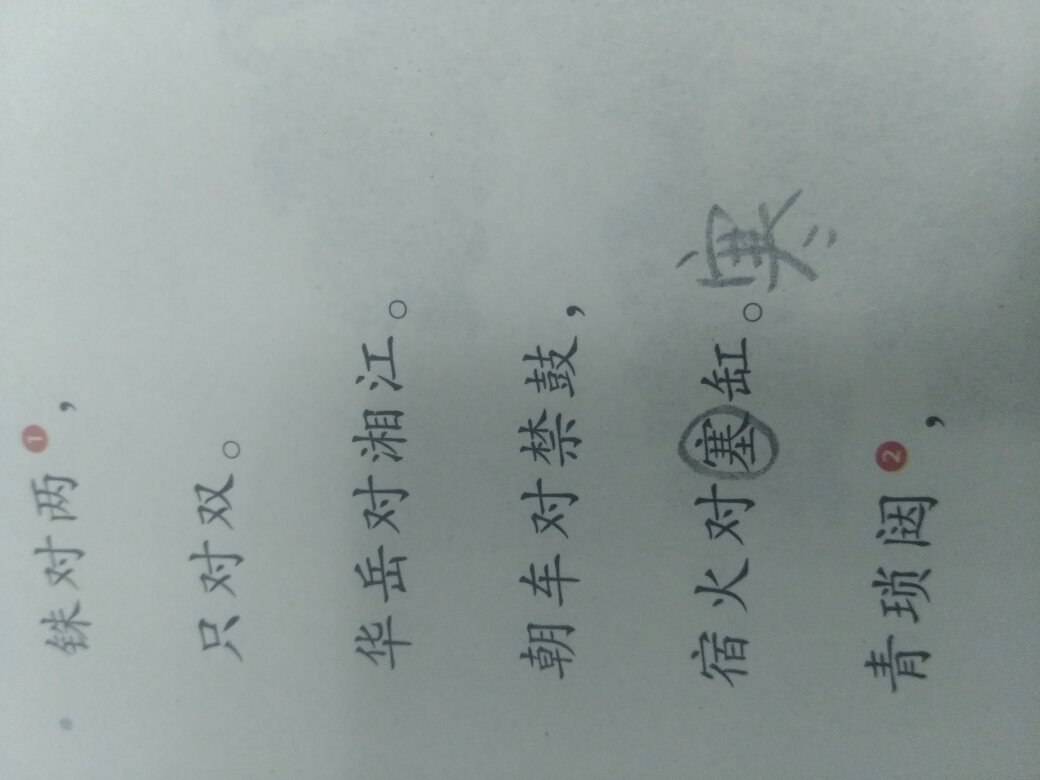 铢对两❶，
只对双。
华岳对湘江。
朝车对禁鼓，
宿火对塞缸。寒
青琐闼❷，